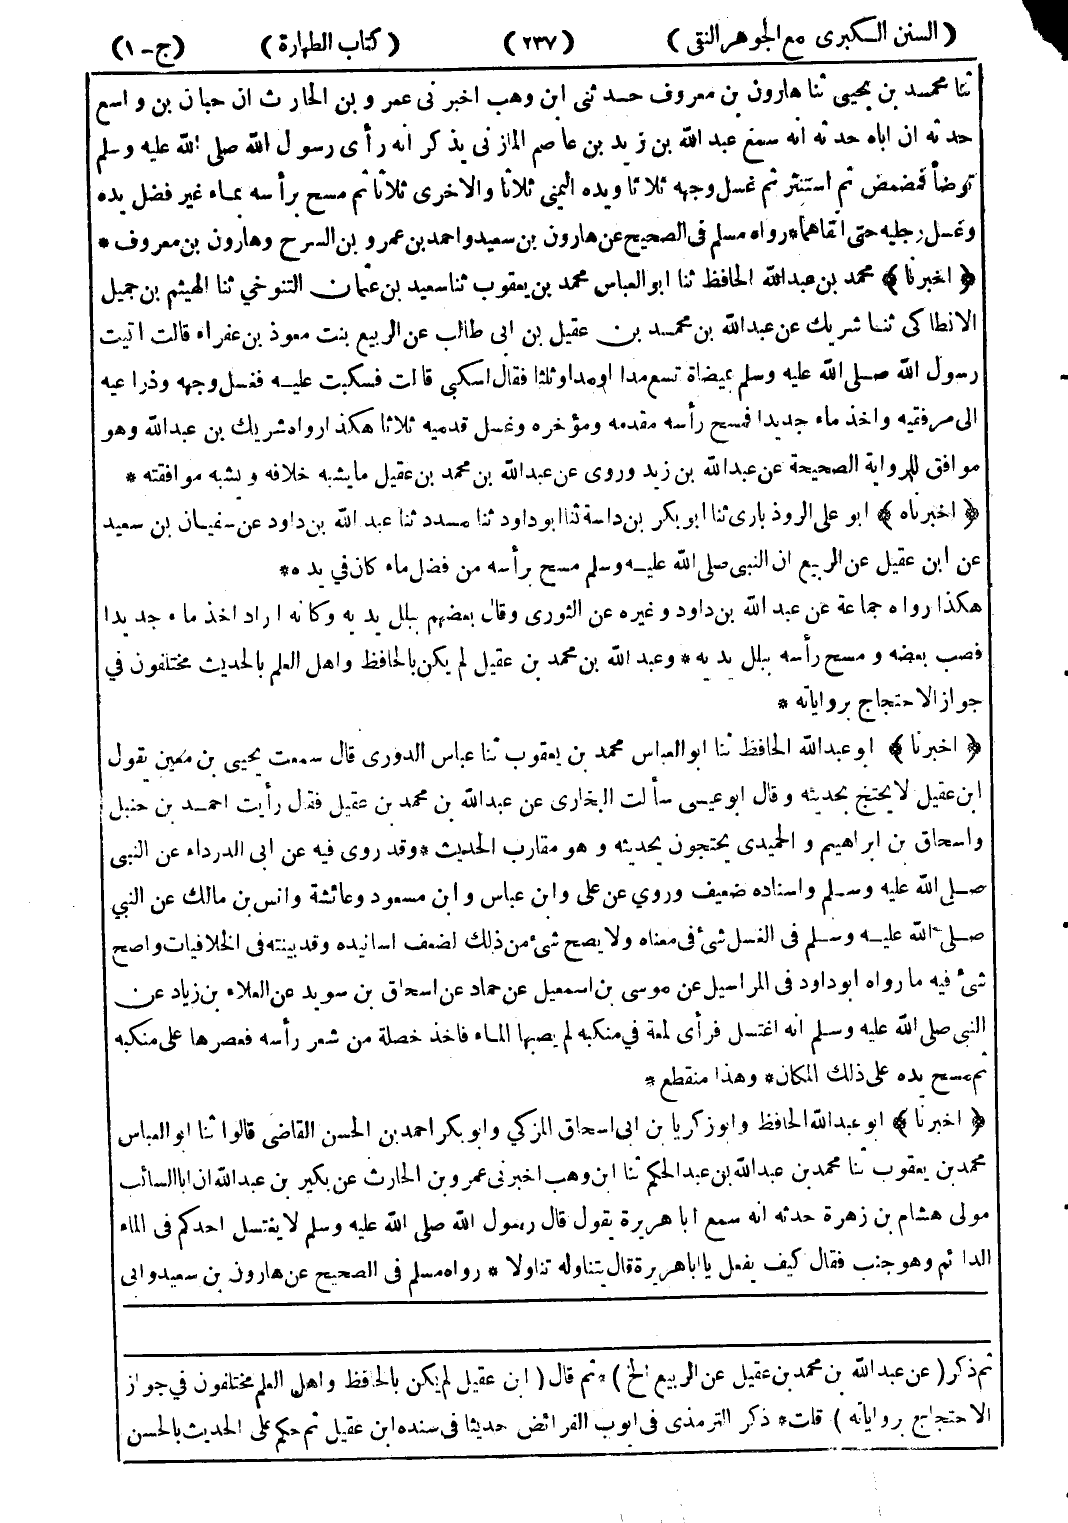 (السنن الكبرى مع الجوهر النقى) (٢٣٧) (كتاب الطهارة) (ج-١)
ثنا محمد بن يحيى ثنا هارون بن معروف حدثنى ابن وهب اخبرنى عمرو بن الحارث ان حبان بن واسع
حدثه ان اباه حدثه انه سمع عبد الله بن زيد بن عاصم المازنى يذكر انه رأى رسول الله صلى الله عليه وسلم
توضأ فمضمض ثم استنثر ثم غسل وجهه ثلاثا ويده اليمنى ثلاثا والاخرى ثلاثا ثم مسح برأسه بماء غير فضل يده
وغسل رجليه حتى انقاهما* رواه مسلم فى الصحيح عن هارون بن سعيد واحمد بن عمرو بن السرح وهارون بن معروف *
﴿ اخبرنا ﴾ محمد بن عبدالله الحافظ ثنا ابو العباس محمد بن يعقوب ثنا سعيد بن عثمان التنوخي ثنا الهيثم بن جميل
الانطاكى ثنا شريك عن عبدالله بن محمد بن عقيل بن ابى طالب عن الربيع بنت معوذ بن عفراء قالت اتيت
رسول الله صلى الله عليه وسلم بميضاة تسع مدا او مدا وثلثا فقال اسكبى قالت فسكبت عليه فغسل وجهه وذراعيه
الى مرفقيه واخذ ماء جديدا فمسح رأسه مقدمه ومؤخره وغسل قدميه ثلاثا هكذا رواه شريك بن عبدالله وهو
موافق للرواية الصحيحة عن عبدالله بن زيد وروى عن عبدالله بن محمد بن عقيل ما يشبه خلافه ويشبه موافقته *
﴿ اخبرناه ﴾ ابو على الروذبارى ثنا ابو بكر بن داسة ثنا ابو داود ثنا مسدد ثنا عبد الله بن داود عن سفيان بن سعيد
عن ابن عقيل عن الربيع ان النبى صلى الله عليه وسلم مسح برأسه من فضل ماء كان في يده*
هكذا رواه جماعة عن عبد الله بن داود وغيره عن الثورى وقال بعضهم ببلل يديه وكانه اراد اخذ ماء جديدا
فصب بعضه ومسح رأسه ببلل يديه* وعبد الله بن محمد بن عقيل لم يكن بالحافظ واهل العلم بالحديث مختلفون في
جواز الاحتجاج برواياته *
﴿ اخبرنا ﴾ ابو عبدالله الحافظ ثنا ابو العباس محمد بن يعقوب ثنا عباس الدورى قال سمعت يحيى بن معين يقول
ابن عقيل لا يحتج بحديثه وقال ابو عيسى سألت البخارى عن عبدالله بن محمد بن عقيل فقال رأيت احمد بن حنبل
واسحاق بن ابراهيم والحميدى يحتجون بحديثه وهو مقارب الحديث *وقد روى فيه عن ابى الدرداء عن النبى
صلى الله عليه وسلم واسناده ضعيف وروي عن على وابن عباس وابن مسعود وعائشة وانس بن مالك عن النبي
صلى الله عليه وسلم فى الغسل شئ فى معناه ولا يصح شئ من ذلك لضعف اسانيده وقد بينته فى الخلافيات واصح
شئ فيه ما رواه ابو داود فى المراسيل عن موسى بن اسمعيل عن حماد عن اسحاق بن سويد عن العلاء بن زياد عن
النبى صلى الله عليه وسلم انه اغتسل فرأى لمعة في منكبه لم يصبها الماء فاخذ خصلة من شعر رأسه فعصرها على منكبه
ثم مسح يده على ذلك المكان* وهذا منقطع *
﴿ اخبرنا ﴾ ابو عبدالله الحافظ وابو زكريا بن ابى اسحاق المزكي وابو بكر احمد بن الحسن القاضى قالوا ثنا ابو العباس
محمد بن يعقوب ثنا محمد بن عبدالله بن عبد الحكم ثنا ابن وهب اخبرنى عمرو بن الحارث عن بكير بن عبدالله ان ابا السائب
مولى هشام بن زهرة حدثه انه سمع ابا هريرة يقول قال رسول الله صلى الله عليه وسلم لا يغتسل احدكم فى الماء
الدائم وهو جنب فقال كيف يفعل يا ابا هريرة قال يتناوله تناولا * رواه مسلم فى الصحيح عن هارون بن سعيد وابى
ثم ذكر (عن عبدالله بن محمد بن عقيل عن الربيع الخ) *ثم قال (ابن عقيل لم يكن بالحافظ واهل العلم مختلفون في جواز
الاحتجاج برواياته) قلت* ذكر الترمذى فى ابوب الفرائض حديثا فى سنده ابن عقيل ثم حكم على الحديث بالحسن